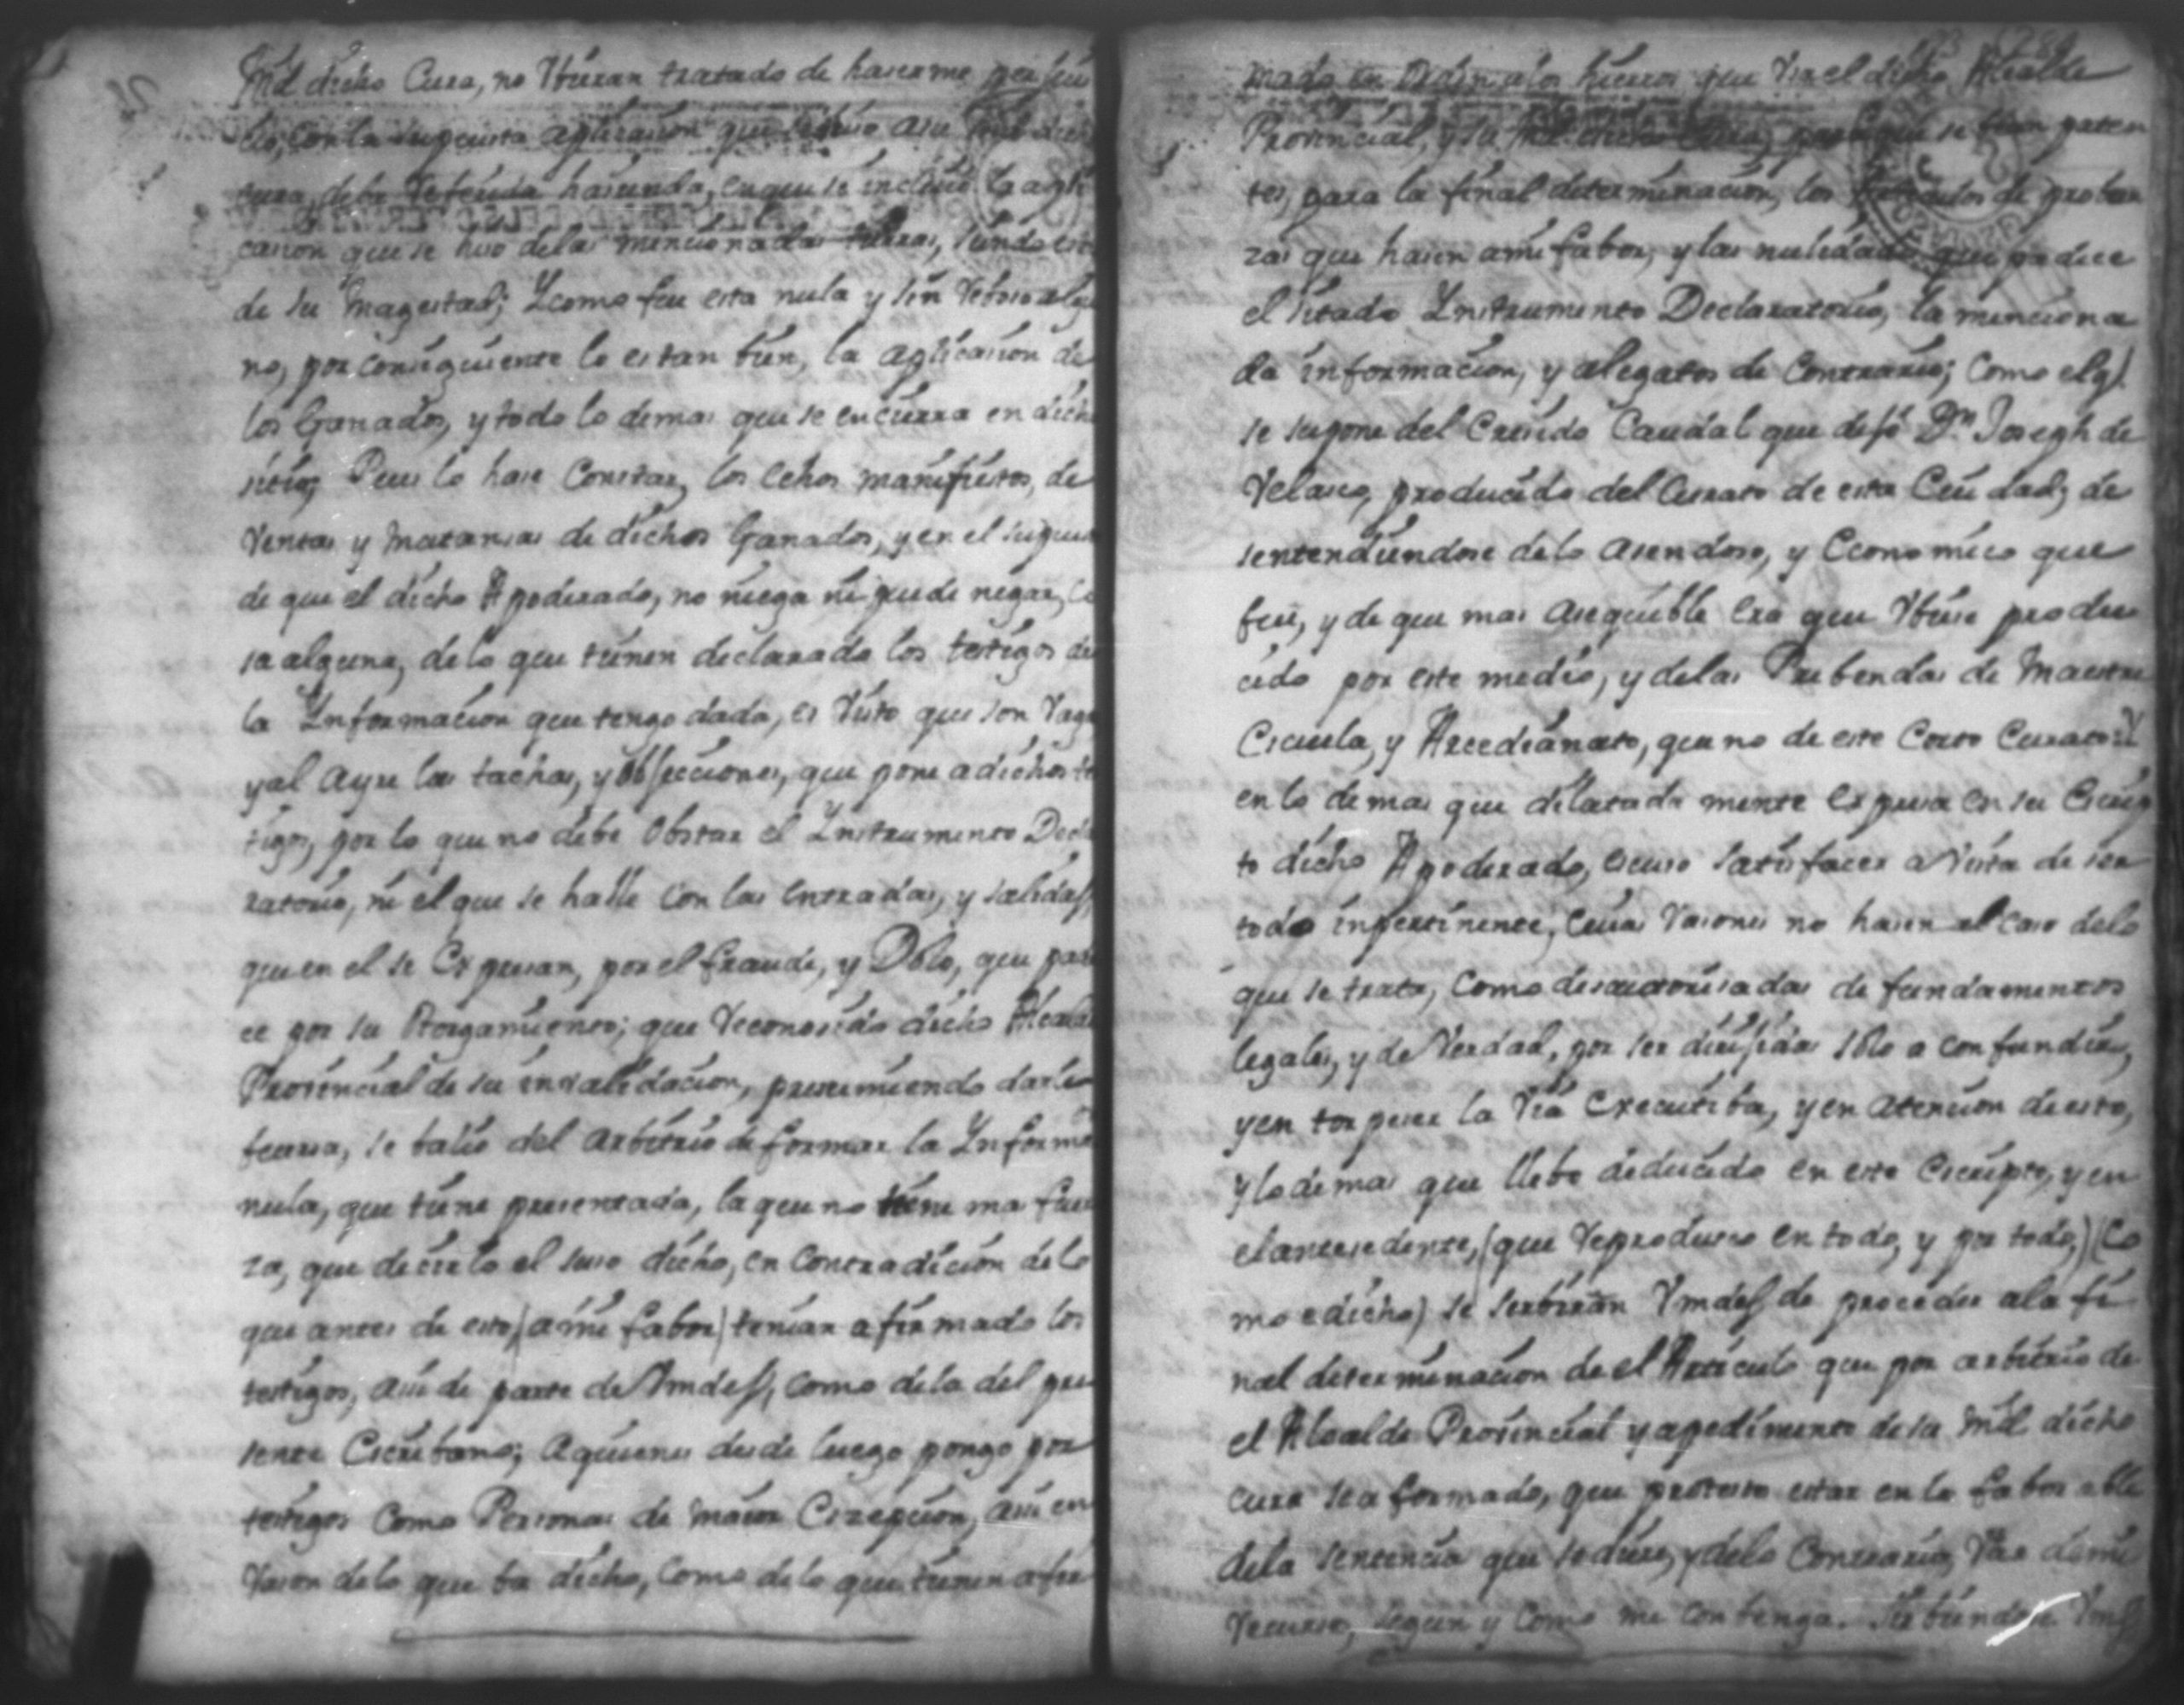 Md dicho Cura, no Vbieran tratado de haserme perjui
cio, con la supuesta aplicasion que se hiso asu
tura, de la referida hasienda, en que se incluió la apli
casion que se hiso delas mencionadas tierras, siendo
de su Magestad; Y como fue esta nula y sin Valor algu
no, por consiguiente lo es tan bien, la aplicasion de
los Ganados, y todo lo demas que se encierra en dicho
sitio; Pues lo hase Constar, los echos manifiestos, de
Ventas y Matansas de dichos Ganados, y en el supues
de que el dicho Apoderado, no niega ni puede negar, co
sa alguna, de lo que tienen declarado los testigos de
la Informacion que tengo dada, es Visto que son Vagas
y al Ayre las tachas, y objecciones, que pone a dichos tes
tigos, por lo que no debe Obstar el Ynstrumento Decla
ratorio, ni el que se halle con las entradas, y salidas,
que en el se Expresan, por el fraude, y Dolo, que pade
ce por su Otorgamiento; que Reconosido dicho Alcalde
Provincial de su invalidacion, presumiendo darle
fuersa, se balió del arbitrio de formar la Informa
nula, que tiene presentada, la que no tiene mas fuer
za, que decirlo el suso dicho, en Contradicion de lo
que antes de esto (a mi fabor) tenian afirmado los
testigos, asi de parte de Vmdes, como dela del pre
sente Escribano; aquienes desde luego pongo por
testigos como Personas de maior Exzepcion, asi en
Rason delo que ba dicho, como de lo que tienen afir
mado en Orden a los hierros que Vsa el dicho Alcalde
Provincial, y su Md dicho Cura, para que se bean paten
tes, para la final determinacion, los de proban
zas que hasen a mi fabor, y las nulidades que padece
el sitado Ynstrumento Declaratorio, la menciona
da informacion, y alegatos de Contrario; Como el q.
se supone del Cresido Caudal que dejó Dn. Joseph de
Velasco, producido del Curato de esta Ciudad; de
sentendiendose de lo asendoso, y Economico que
fue, y de que mas asequible era que Vbiese produ
cido por este medio, y delas Prebendas de Maestre
Escuela, y Arcedianato, que no de este Corto Curato: Y
en lo demas que dilatada mente expresa en su Escrip
to dicho Apoderado, escuso satisfacer a Vista de ser
todo inpertinente, cuias Rasones no hasen al caso delo
que se trata, como desautorisadas de fundamentos
legales, y de Verdad, por ser dirijidas solo a confundir,
y en torpeser la Via Executiba, y en atension de esto,
y lo demas que llebo deducido en este Escripto, y en
el antesedente, (que Reprodusco en todo, y por todo,) (Co
mo e dicho) se serbiran Vmdes de proceder ala fi
nal determinacion de el Articulo que por arbitrio de
el Alcalde Provincial y apedimento de su Md dicho
cura sea formado, que protesto estar en lo faborable
dela sentencia que se diere, y delo Contrario, Vsar de mi
Recurso, segun y como me conbenga. Sirbiendose Vmds